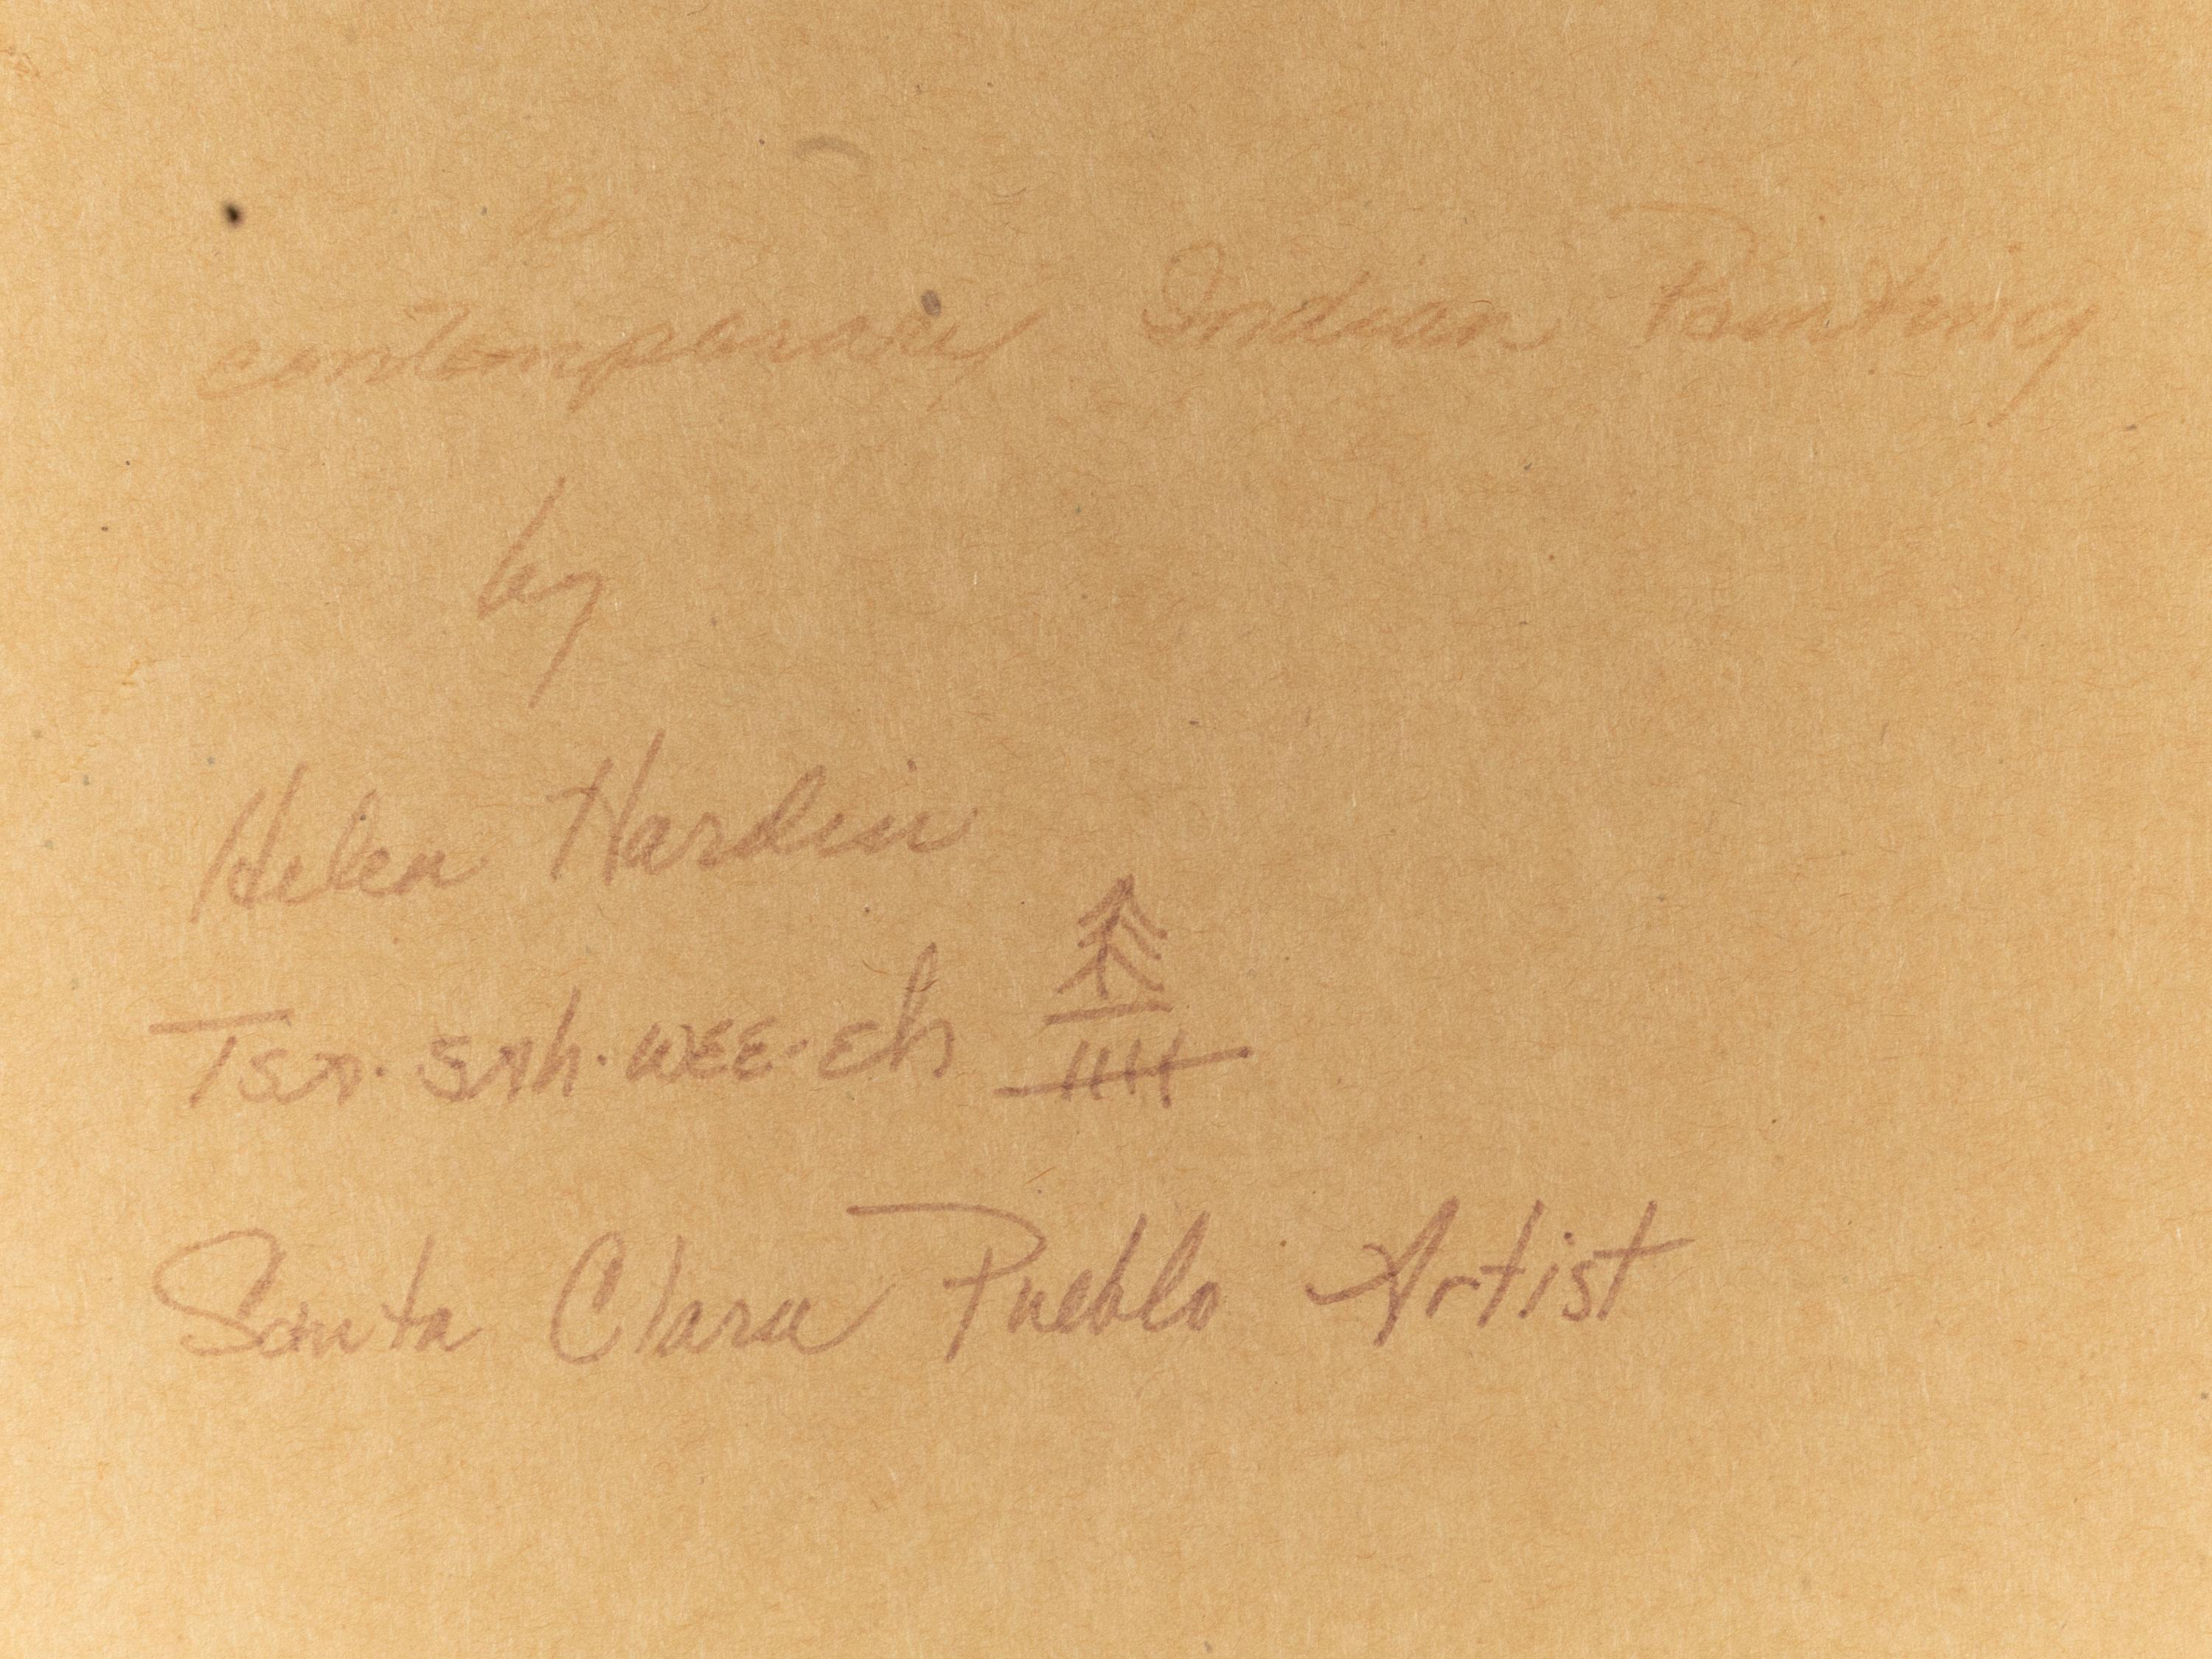 a
contemporary Indian Painting
by
Helen Hardin
Tsa·sah·wee·eh
Santa Clara Pueblo Artist